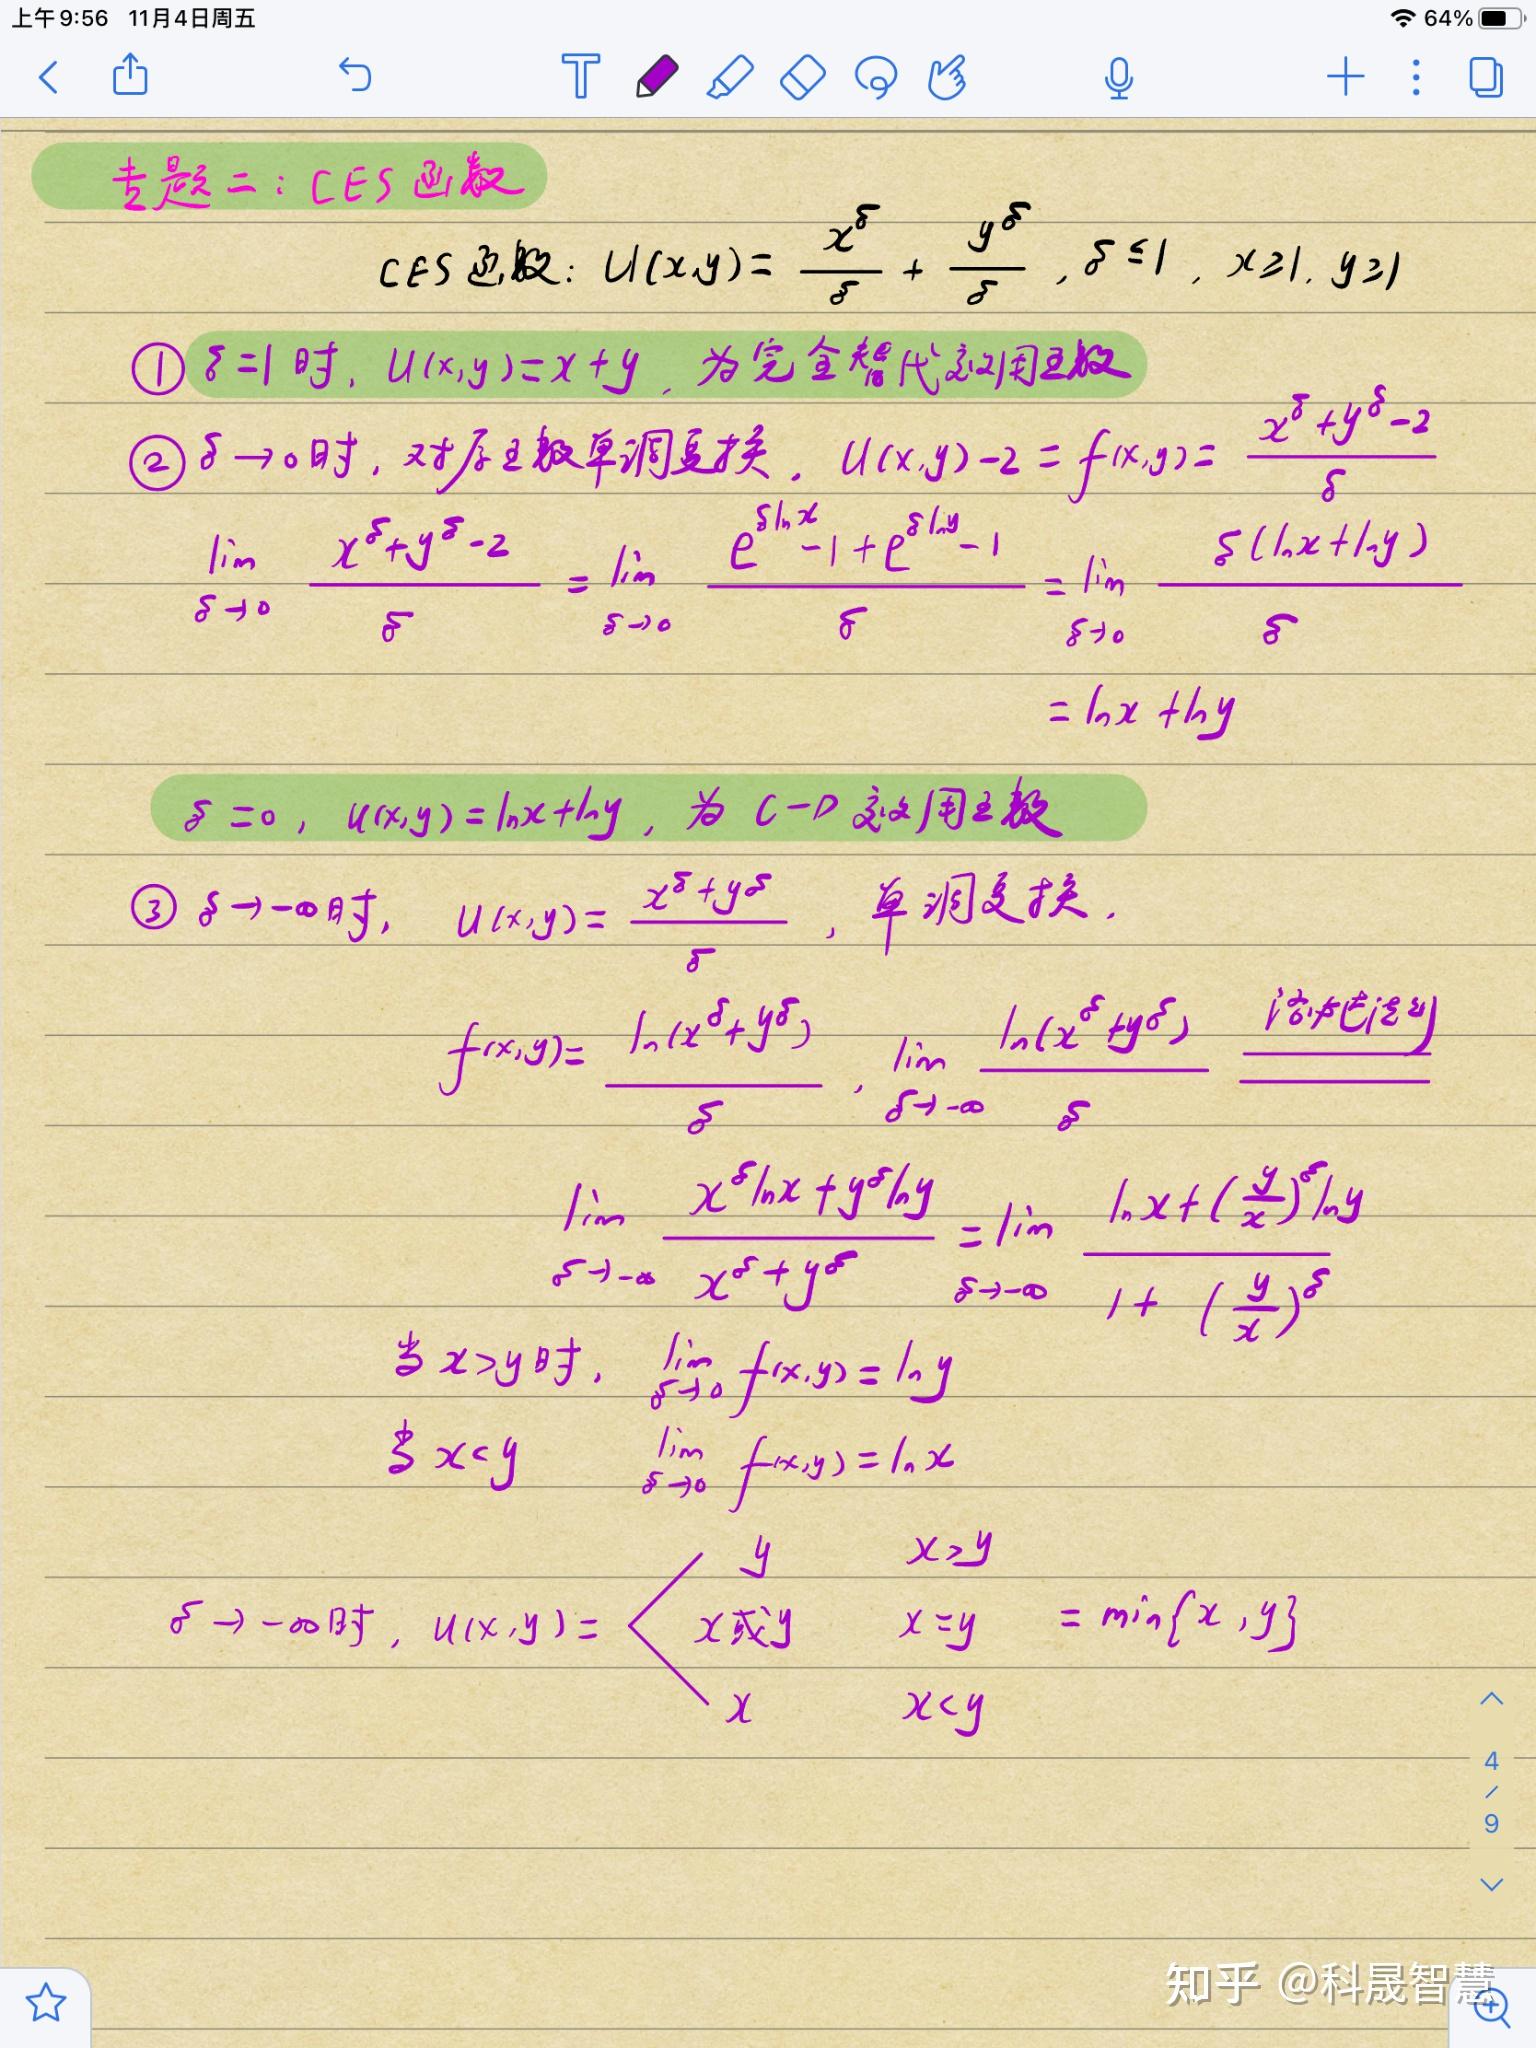 上午9:56 11月4日周五 64%
专题二：CES函数
CES函数：U(x,y)= x^δ/δ + y^δ/δ , δ≤1 , x≥1. y≥1
① δ=1时, U(x,y)=x+y , 为完全替代效用函数
② δ→0时, 对原函数单调变换. U(x,y)-2 = f(x,y)= (x^δ+y^δ-2)/δ
lim δ→0 (x^δ+y^δ-2)/δ = lim δ→0 (e^(δlnx)-1+e^(δlny)-1)/δ = lim δ→0 δ(lnx+lny)/δ
= lnx+lny
δ=0, u(x,y)=lnx+lny, 为C-D效用函数
③ δ→-∞时, U(x,y)= (x^δ+y^δ)/δ , 单调变换.
f(x,y)= ln(x^δ+y^δ)/δ , lim δ→-∞ ln(x^δ+y^δ)/δ 洛必达法则
lim δ→-∞ (x^δlnx+y^δlny)/(x^δ+y^δ) = lim δ→-∞ (lnx+(y/x)^δlny)/(1+(y/x)^δ)
当x>y时, lim δ→0 f(x,y)=lny
当x<y lim δ→0 f(x,y)=lnx
y x>y
δ→-∞时, u(x,y)= x或y x=y = min{x,y}
x x<y
4
/
9
知乎 @科晟智慧